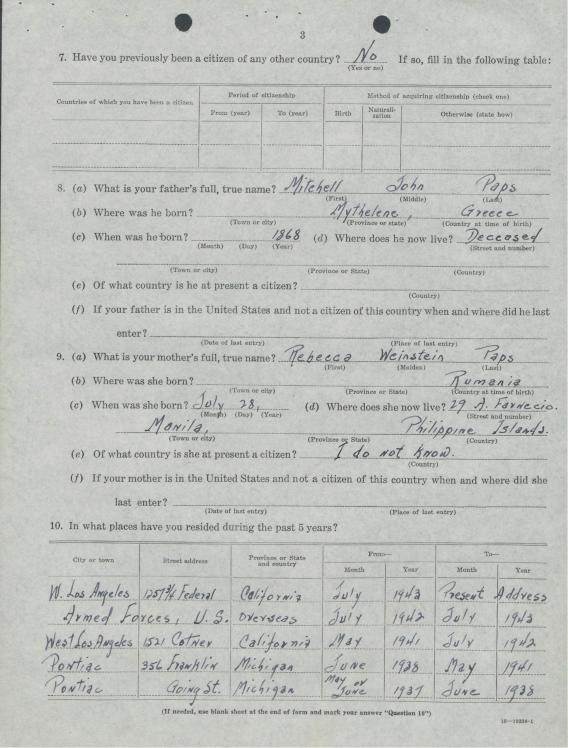 3
7. Have you previously been a citizen of any other country? No If so, fill in the following table:
(Yes or no)
Countries of which you have been a citizen
Period of citizenship
Method of acquiring citizenship (check one)
From (year) To (year) Birth Naturali-zation Otherwise (state how)
8. (a) What is your father's full, true name? Mitchell John Paps
(First) (Middle) (Last)
(b) Where was he born? Mythelene, Greece
(Town or city) (Province or state) (Country at time of birth)
(c) When was he born? 1868 (d) Where does he now live? Deceased
(Month) (Day) (Year) (Street and number)
(Town or city) (Province or State) (Country)
(e) Of what country is he at present a citizen?
(Country)
(f) If your father is in the United States and not a citizen of this country when and where did he last
enter?
(Date of last entry) (Place of last entry)
9. (a) What is your mother's full, true name? Rebecca Weinstein Paps
(First) (Maiden) (Last)
(b) Where was she born? Rumania
(Town or city) (Province or State) (Country at time of birth)
(c) When was she born? July 28, (d) Where does she now live? 29 A.
(Month) (Day) (Year) (Street and number)
Manila, Philippine Islands.
(Town or city) (Province or State) (Country)
(e) Of what country is she at present a citizen? I do not know.
(Country)
(f) If your mother is in the United States and not a citizen of this country when and where did she
last enter?
(Date of last entry) (Place of last entry)
10. In what places have you resided during the past 5 years?
City or town Street address Province or State and country From— To—
Month Year Month Year
W. Los Angeles 1257¾ Federal California July 1943 Present Address
Armed Forces, U.S. Overseas July 1942 July 1943
West Los Angeles 1521 Cotner California May 1941 July 1942
Pontiac 356 Franklin Michigan June 1938 May 1941
Pontiac Going St. Michigan May or June 1937 June 1938
(If needed, use blank sheet at the end of form and mark your answer "Question 10")